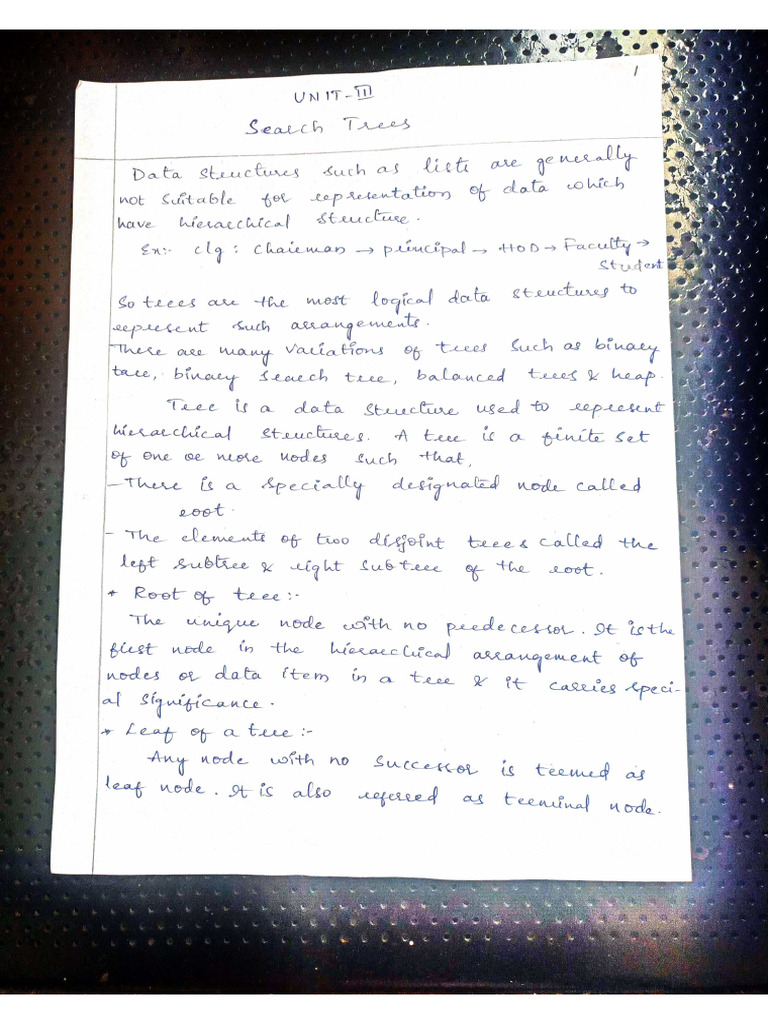 1
UNIT-III
Search Trees
Data structures such as lists are generally
not suitable for representation of data which
have hierarchical structure.
Ex:- clg : Chairman → principal → HOD → Faculty →
Student
So trees are the most logical data structures to
represent such arrangements.
There are many variations of trees such as binary
tree, binary search tree, balanced trees & heap.
Tree is a data structure used to represent
hierarchical structures. A tree is a finite set
of one or more nodes such that,
- There is a specially designated node called
root.
- The elements of two disjoint trees called the
left subtree & right subtree of the root.
* Root of tree:-
The unique node with no predecessor. It is the
first node in the hierarchical arrangement of
nodes or data item in a tree & it carries speci-
al significance.
* Leaf of a tree :-
Any node with no successor is termed as
leaf node. It is also referred as terminal node.